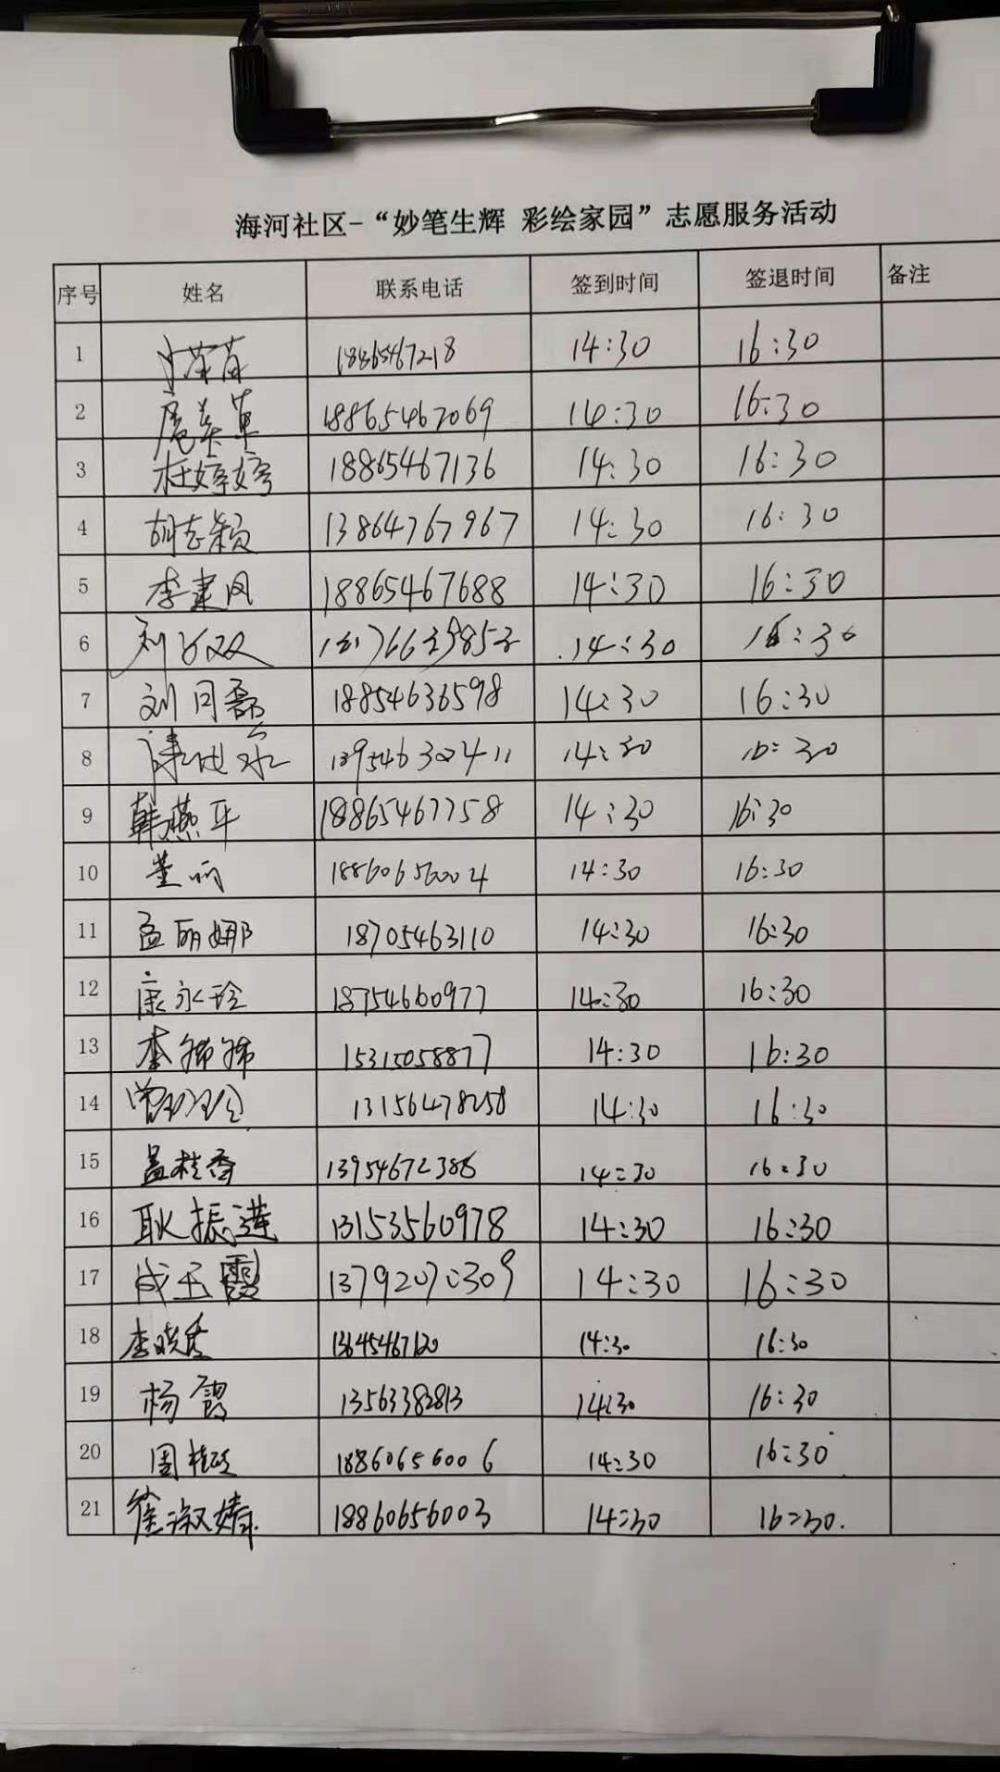 海河社区-“妙笔生辉 彩绘家园”志愿服务活动
序号 姓名 联系电话 签到时间 签退时间 备注
1 18865467218 14:30 16:30
2 18865467069 14:30 16:30
3 杜婷婷 18865467136 14:30 16:30
4 胡志颖 13864767967 14:30 16:30
5 李建凤 18865467688 14:30 16:30
6 14:30 16:30
7 刘同磊 18854636598 14:30 16:30
8 13954630411 14:30 16:30
9 韩燕平 18865467758 14:30 16:30
10 董丽 18860656004 14:30 16:30
11 孟丽娜 18705463110 14:30 16:30
12 康永玲 18754660977 14:30 16:30
13 李娜娜 15315058877 14:30 16:30
14 13156478258 14:30 16:30
15 孟桂香 13954672386 14:30 16:30
16 耿振莲 13153560978 14:30 16:30
17 成玉霞 13792072309 14:30 16:30
18 李晓秀 13645467120 14:30 16:30
19 杨霞 13563382813 14:30 16:30
20 周桂 18860656006 14:30 16:30
21 崔淑婧 18860656003 14:30 16:30.